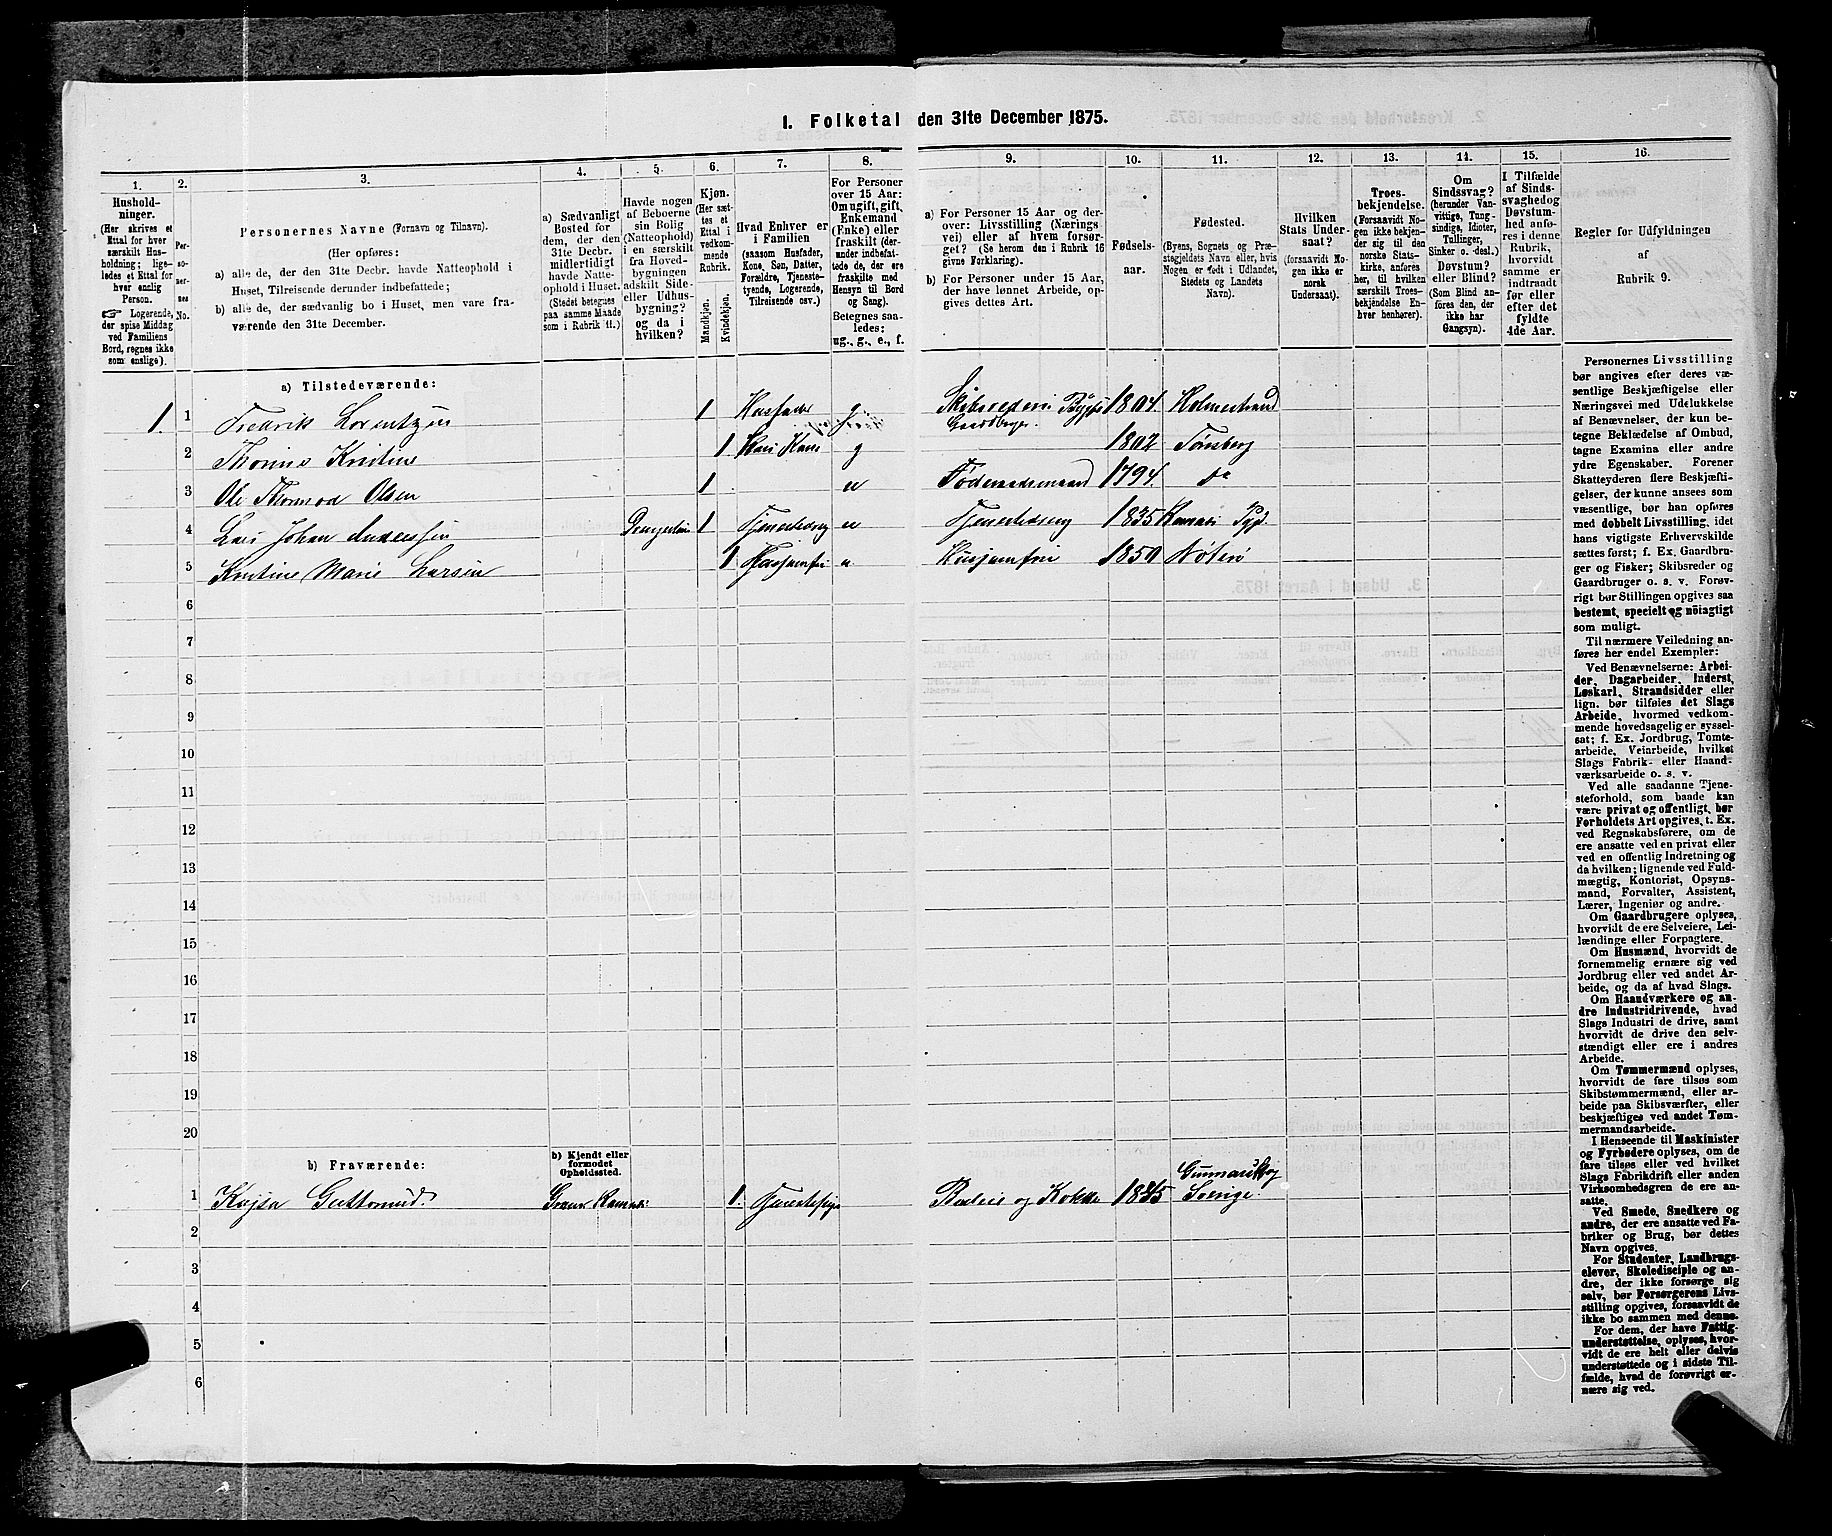 1. Folketal den 31te December 1875.
1.
Hushold-
ninger.
(Her skrives et
Ettal for hver
særskilt Hus-
holdning; lige-
ledes et Ettal for
hver enslig
Person.
Logerende,
der spise Middag
ved Familiens
Bord, regnes ikke
som enslige).
2.
Per-
so-
ner-
nes
No.
3.
Personernes Navne (Fornavn og Tilnavn).
(Her opføres:
a) alle de, der den 31te Decbr. havde Natteophold i
Huset, Tilreisende derunder indbefattede;
b) alle de, der sædvanlig bo i Huset, men vare fra-
værende den 31te December.
4.
a) Sædvanligt
Bosted for
dem, der den
31te Decbr.
midlertidigt
havde Natte-
ophold i Huset.
(Stedet betegnes
paa samme Maade
som i Rubrik 11.)
5.
Havde nogen
af Beboerne
sin Bolig
(Natteophold)
i en særskilt
fra Hoved-
bygningen
adskilt Side-
eller Udhus-
bygning?
og da i
hvilken?
6.
Kjøn.
(Her sæt-
tes et
Ettal i
vedkom-
mende
Rubrik.
Mandkjøn.
Kvindekjøn.
7.
Hvad Enhver er
i Familien
(saasom Husfader,
Kone, Søn, Datter,
Forældre, Tjeneste-
tyende, Logerende,
Tilreisende osv.)
8.
For Personer
over 15 Aar:
Om ugift, gift,
Enkemand
(Enke) eller
fraskilt (der-
under indbefat-
tede de, der ere
fraskilte med
Hensyn til Bord
og Sang).
Betegnes saa-
ledes:
ug., g., e., f.
9.
a) For Personer 15 Aar og der-
over: Livsstilling (Nærings-
vei) eller af hvem forsør-
get? (Se herom den i Rubrik 16
givne Forklaring).
b) For Personer under 15 Aar,
der have lønnet Arbeide, op-
gives dettes Art.
10.
Fødsels-
aar.
11.
Fødested.
(Byens, Sognets og Præ-
stegjeldets Navn eller, hvis
Nogen er født i Udlandet,
Stedets og Landets
Navn).
12.
Hvilken
Stats Under-
saat?
(forsaavidt No-
gen ikke er
norsk
Undersaat).
13.
Troes-
bekjendelse.
(Forsaavidt No-
gen ikke bekjen-
der sig til den
norske Stats-
kirke, anføres
her, til hvilken
særskilt Troes-
bekjendelse En-
hver henhører).
14.
Om
Sindssvag?
(herunder Van-
vittige, Tung-
sindige, Idioter,
Tullinger,
Sinker o. desl.)
Døvstum?
eller Blind?
(Som Blind an-
føres den, der
ikke har
Gangsyn).
15.
I Tilfælde
af Sinds-
svaghed og
Døvstum-
hed anfø-
res i denne
Rubrik,
hvorvidt
samme er
indtraadt
før eller
efter det
fyldte
4de Aar.
16.
Regler for Udfyldningen
af
Rubrik 9.
a) Tilstedeværende:
1. 1 Fredrik Lorentzen 1 Husfader g Skibsrederi Gaardbruger. 1804. Holmestrand
2 Thorine Kristine 1 g 1802 Tønsberg
3 Ole Thormod Olsen 1 1794. do
4 Lars Johan Anderssen 1 Tjenestedreng Tjenestedreng 1835
5 Kristine Marie Larsen 1 Husjomfru Husjomfru 1850 Nøterø
6
7
8
9
10
11
12
13
14
15
16
17
18
19
20
b) Fraværende:
b) Kjendt eller
formodet
Opholdssted.
1 Kajsa 1. Tjenestepige og Kokke Sverige.
2
3
4
5
6
Personernes Livsstilling
bør angives efter deres væ-
sentlige Beskjæftigelse eller
Næringsvei med Udelukkelse
af Benævnelser, der kun be-
tegne Beklædelse af Ombud,
tagne Examina eller andre
ydre Egenskaber. Forener
Skatteyderen flere Beskjæfti-
gelser, der kunne ansees som
væsentlige, bør han opføres
med dobbelt Livsstilling, idet
hans vigtigste Erhvervskilde
sættes først; f. Ex. Gaardbru-
ger og Fisker; Skibsreder og
Gaardbruger o. s. v. Forøv-
rigt bør Stillingen opgives saa
bestemt, specielt og nøiagtigt
som muligt.
Til nærmere Veiledning an-
føres her endel Exempler:
Ved Benævnelserne: Arbei-
der, Dagarbeider, Inderst,
Løskarl, Strandsidder eller
lign. bør tilføies det Slags
Arbeide, hvormed vedkom-
mende hovedsagelig er syssel-
sat; f. Ex. Jordbrug, Tomte-
arbeide, Veiarbeide, hvilket
Slags Fabrik- eller Haand-
værksarbeide o. s. v.
Ved alle saadanne Tjene-
steforhold, som baade kan
være privat og offentligt, bør
Forholdets Art opgives, t. Ex.
ved Regnskabsførere, om de
ere ansatte ved en privat eller
ved en offentlig Indretning og
da hvilken; lignende ved Fuld-
mægtig, Kontorist, Opsyns-
mand, Forvalter, Assistent,
Lærer, Ingeniør og andre.
Om Gaardbrugere oplyses,
hvorvidt de ere Selveiere, Lei-
lændinge eller Forpagtere.
Om Husmænd, hvorvidt de
fornemmelig ernære sig ved
Jordbrug eller ved andet Ar-
beide, og da af hvad Slags.
Om Haandværkere og an-
dre Industridrivende, hvad
Slags Industri de drive, samt
hvorvidt de drive den selv-
stændigt eller ere i andres
Arbeide.
Om Tømmermænd oplyses,
hvorvidt de fare tilsøs som
Skibstømmermænd, eller ar-
beide paa Skibsværfter, eller
beskjæftiges ved andet Tøm-
mermandsarbeide.
I Henseende til Maskinister
og Fyrbødere oplyses, om de
fare tilsøs eller ved hvilket
Slags Fabrikdrift eller anden
Virksomhedsgren de ere an-
satte.
Ved Smede, Snedkere og
andre, der ere ansatte ved Fa-
briker og Brug, bør dettes
Navn opgives.
For Studenter, Landbrugs-
elever, Skoledisciple og an-
dre, der ikke forsørge sig
selv, bør Forsørgerens Livs-
stilling opgives, forsaavidt de
ikke bo sammen med denne.
For dem, der have Fattig-
understøttelse, oplyses, hvor-
vidt de ere helt eller delvis
understøttede og i sidste Til-
fælde, hvad de forøvrigt er-
nære sig ved.